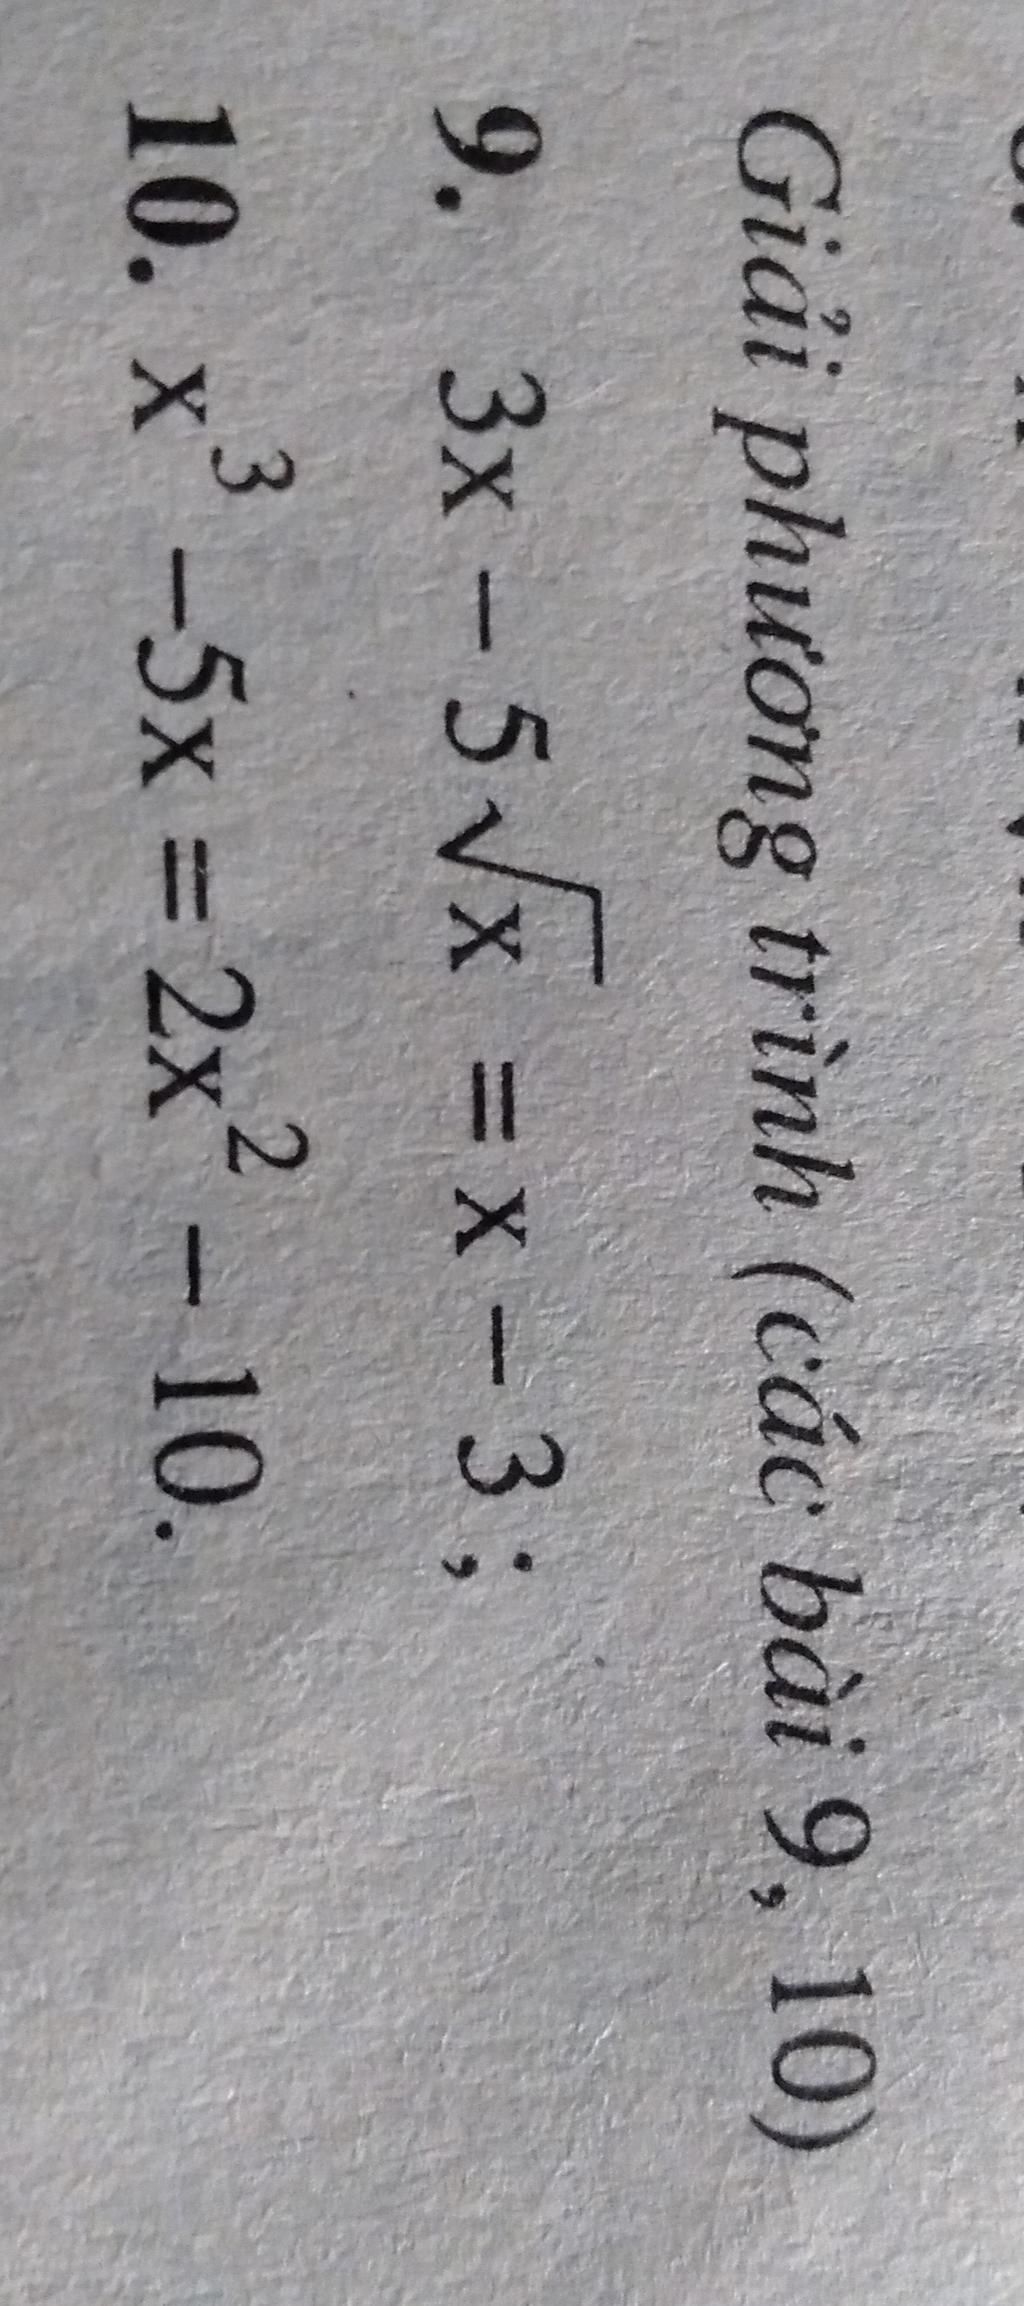 Giải phương trình (các bài 9, 10)
9. 3x – 5√x = x – 3 ;
10. x³ – 5x = 2x² – 10.